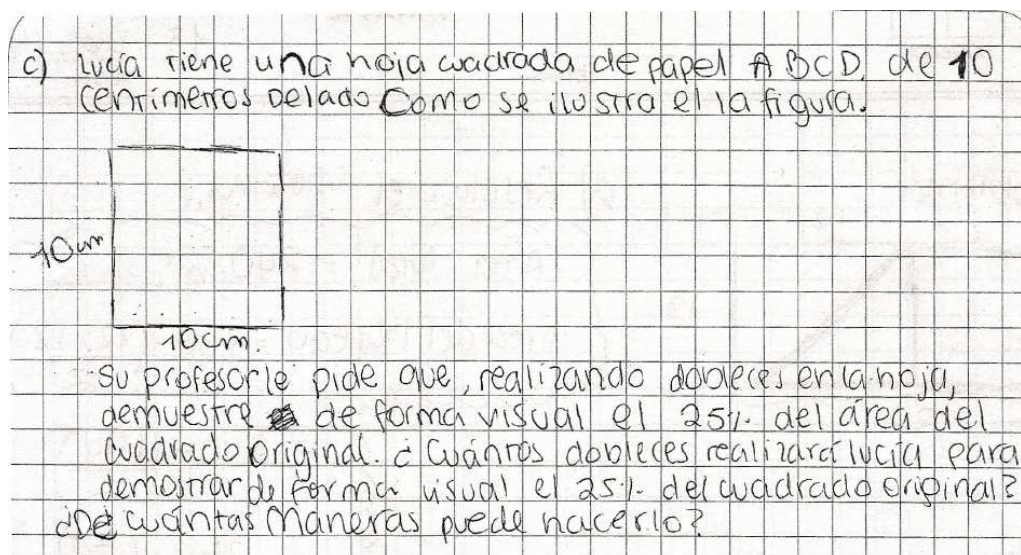 c) Lucía tiene una hoja cuadrada de papel ABCD. de 10
centímetros De lado Como se ilustra el la figura.
10cm
10cm.
Su profesor le pide que, realizando dobleces en la hoja,
demuestre de forma visual el 25%. del área del
cuadrado original. ¿Cuántos dobleces realizará lucía para
demostrar de forma visual el 25%. del cuadrado original?
¿De cuántas maneras puede hacerlo?